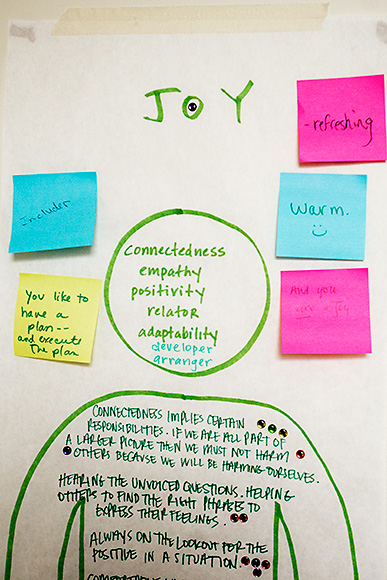 JOY
-refreshing
Includer
Warm.
You like to
have a
plan--
and execute
The plan
And you
are a Joy
connectedness
empathy
positivity
relator
adaptability
developer
arranger
CONNECTEDNESS IMPLIES CERTAIN
RESPONSIBILITIES. IF WE ARE ALL PART OF
A LARGER PICTURE THEN WE MUST NOT HARM
OTHERS BECAUSE WE WILL BE HARMING OURSELVES.
HEARING THE UNVOICED QUESTIONS. HELPING
OTHERS TO FIND THE RIGHT PHRASES TO
EXPRESS THEIR FEELINGS.
ALWAYS ON THE LOOKOUT FOR THE
POSITIVE IN A SITUATION.